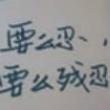 要么忍，
要么残忍